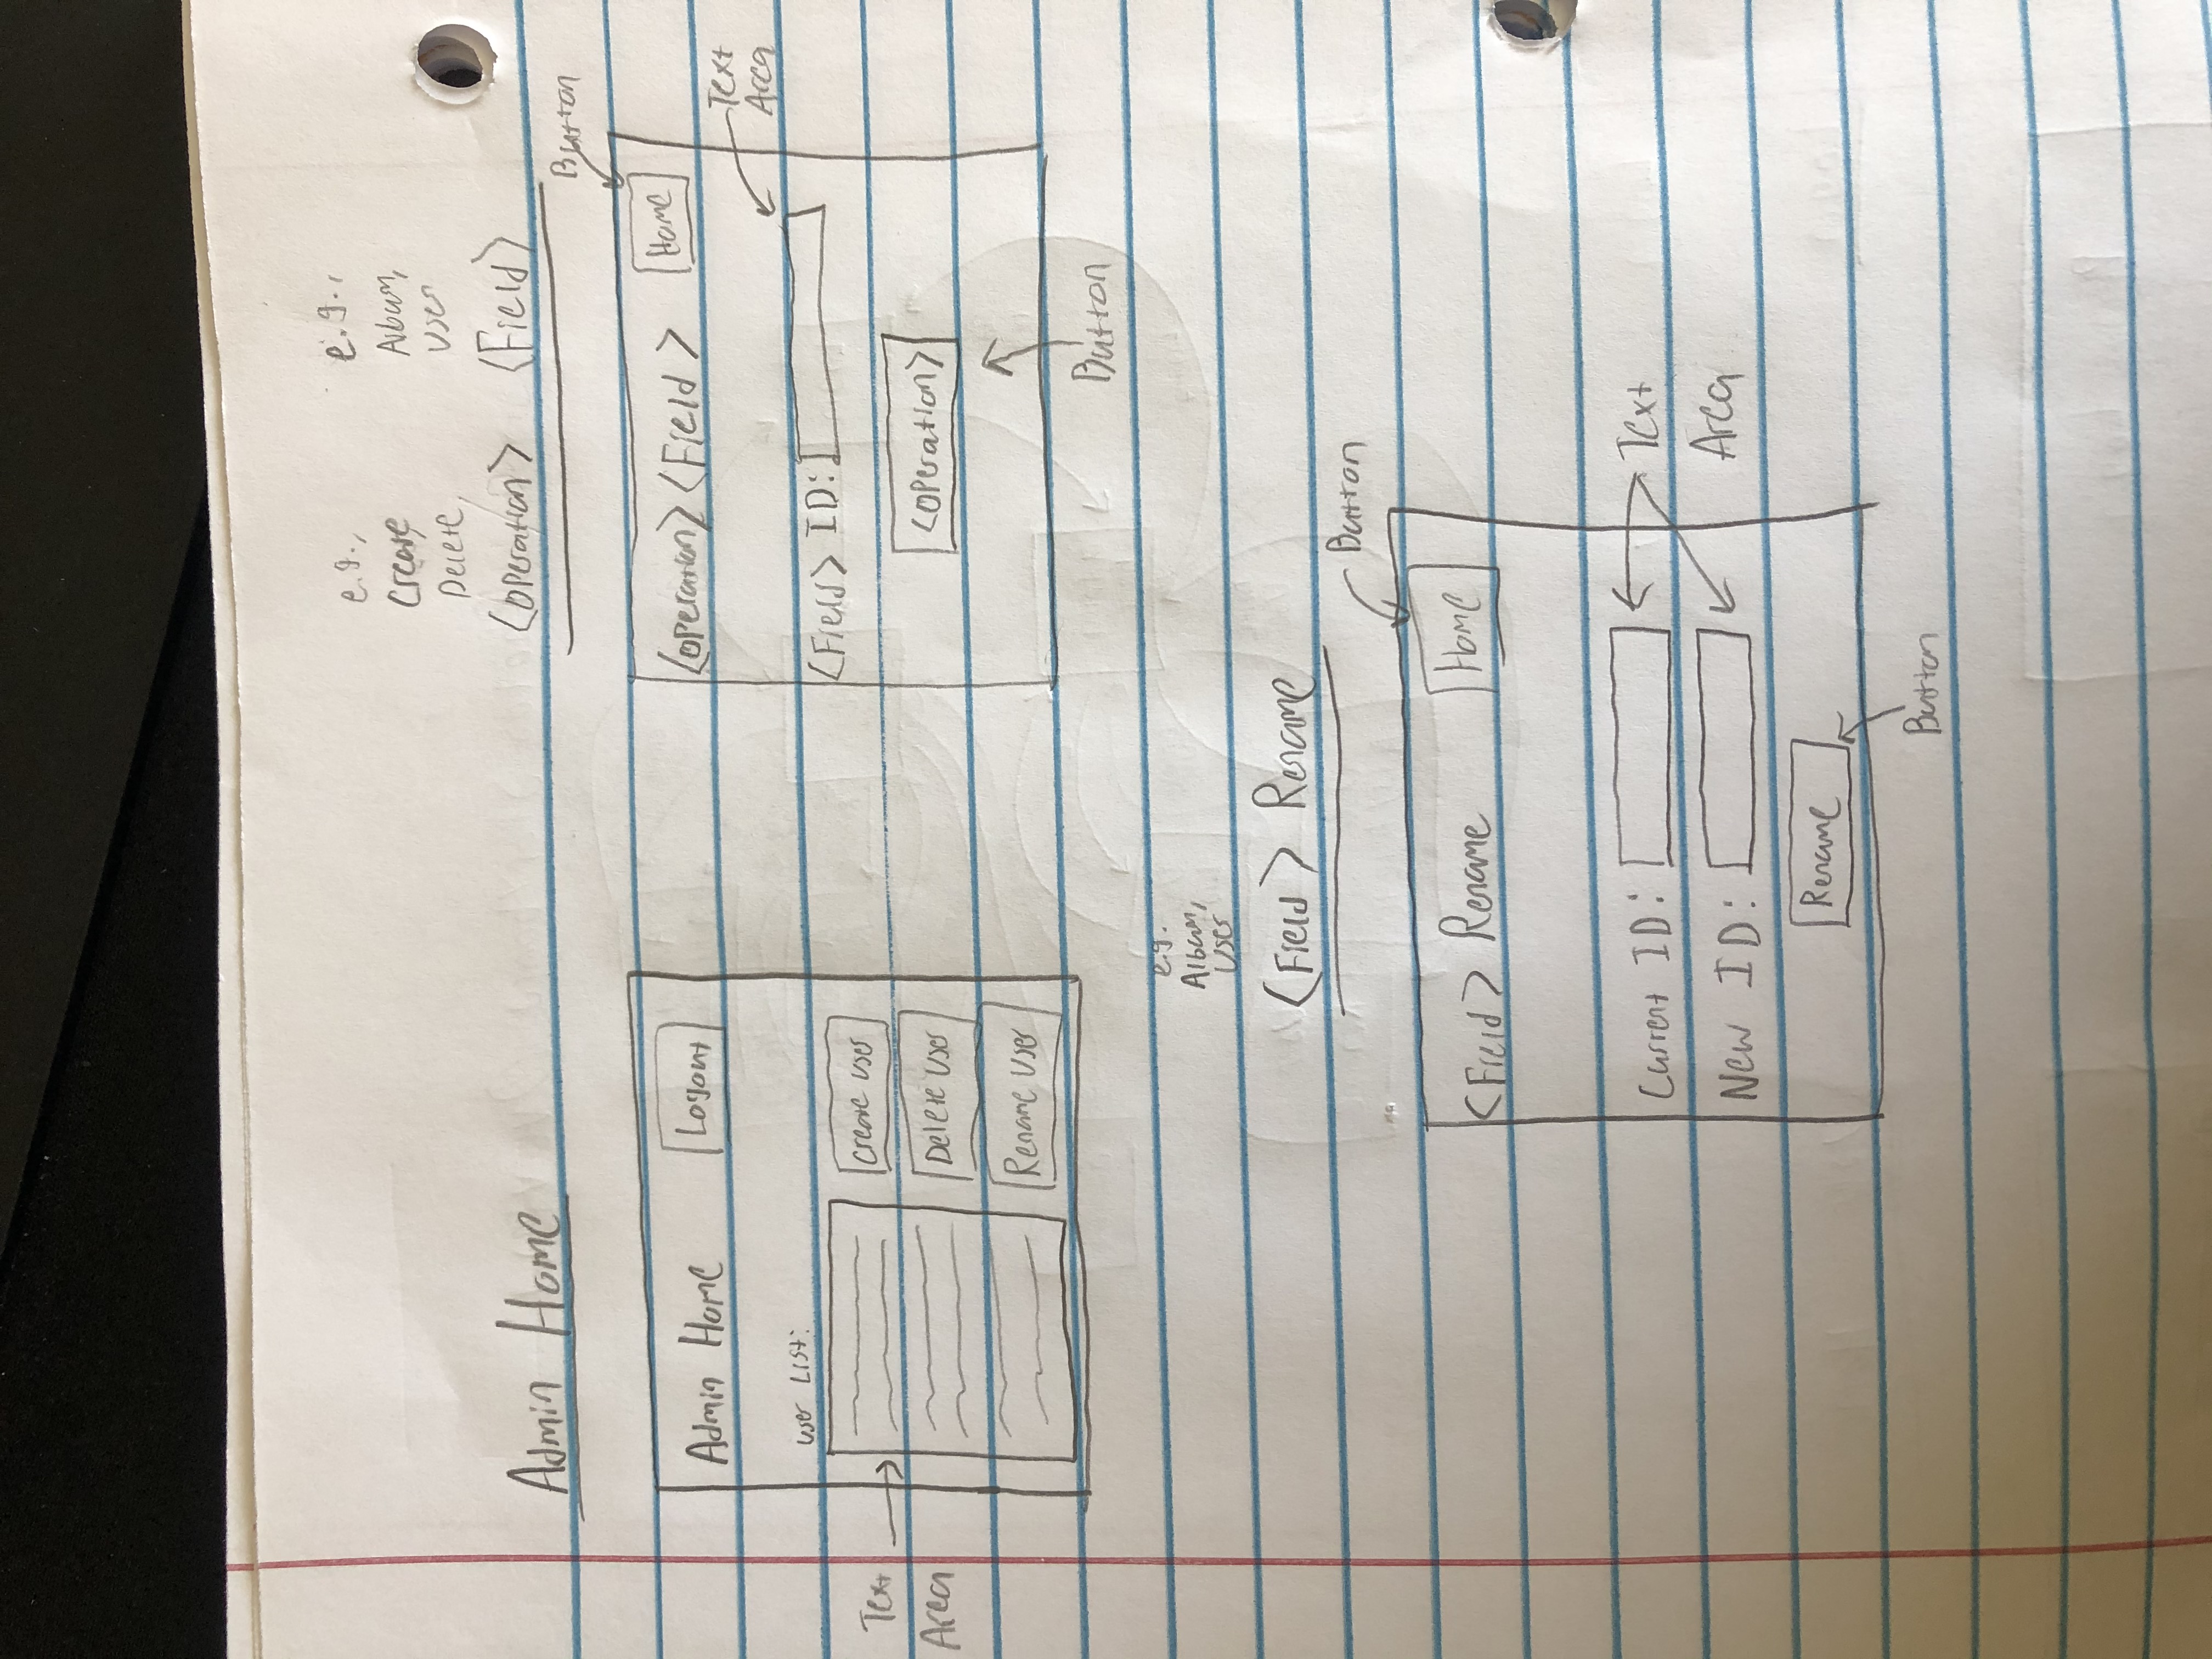 Admin Home
Admin Home
Logout
User List:
Text
Area
Create User
Delete User
Rename User
e.g.,
Create,
Delete,
<operation>
e.g.,
Album,
User
<Field>
Button
<operation> <Field>
Home
Text
Area
<Field> ID:
<operation>
Button
e.g.
Album,
User
<Field> Rename
Button
<Field> Rename
Home
Current ID:
New ID:
Text
Area
Rename
Button